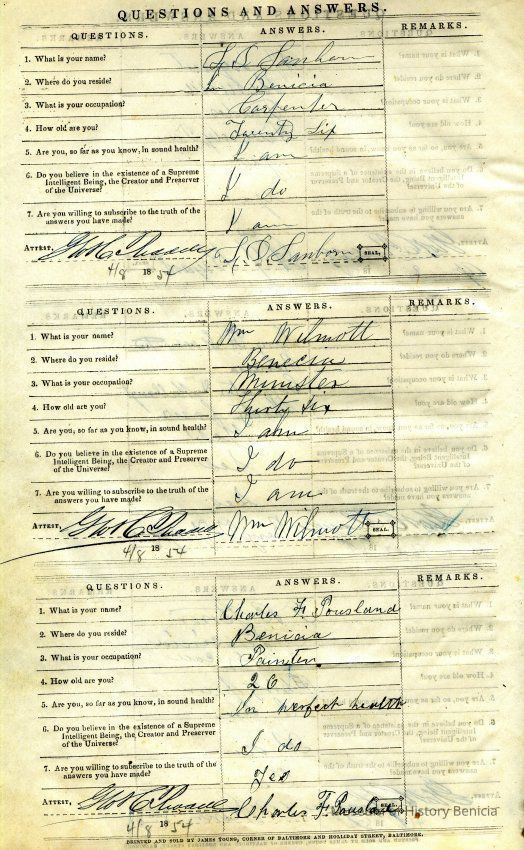 QUESTIONS AND ANSWERS.
QUESTIONS. ANSWERS. REMARKS.
1. What is your name? S. Sanborn
2. Where do you reside? In Benicia
3. What is your occupation? Carpenter
4. How old are you? Twenty Six
5. Are you, so far as you know, in sound health? I am
6. Do you believe in the existence of a Supreme
Intelligent Being, the Creator and Preserver
of the Universe? I do
7. Are you willing to subscribe to the truth of the
answers you have made? I am
ATTEST, Sanborn SEAL.
4/8 1854
QUESTIONS. ANSWERS. REMARKS.
1. What is your name? Wm Wilmott
2. Where do you reside? Benecia
3. What is your occupation? Minister
4. How old are you? Thirty six
5. Are you, so far as you know, in sound health? I am
6. Do you believe in the existence of a Supreme
Intelligent Being, the Creator and Preserver
of the Universe? I do
7. Are you willing to subscribe to the truth of the
answers you have made? I am
ATTEST, Wm Wilmott SEAL.
4/8 1854
QUESTIONS. ANSWERS. REMARKS.
1. What is your name? Charles F. Pousland
2. Where do you reside? Benicia
3. What is your occupation? Painter
4. How old are you? 26
5. Are you, so far as you know, in sound health? In perfect health
6. Do you believe in the existence of a Supreme
Intelligent Being, the Creator and Preserver
of the Universe? I do
7. Are you willing to subscribe to the truth of the
answers you have made? Yes
ATTEST, Charles F. Pousland SEAL.
History Benicia
4/8 1854
PRINTED AND SOLD BY JAMES YOUNG, CORNER OF BALTIMORE AND HOLLIDAY STREET, BALTIMORE.